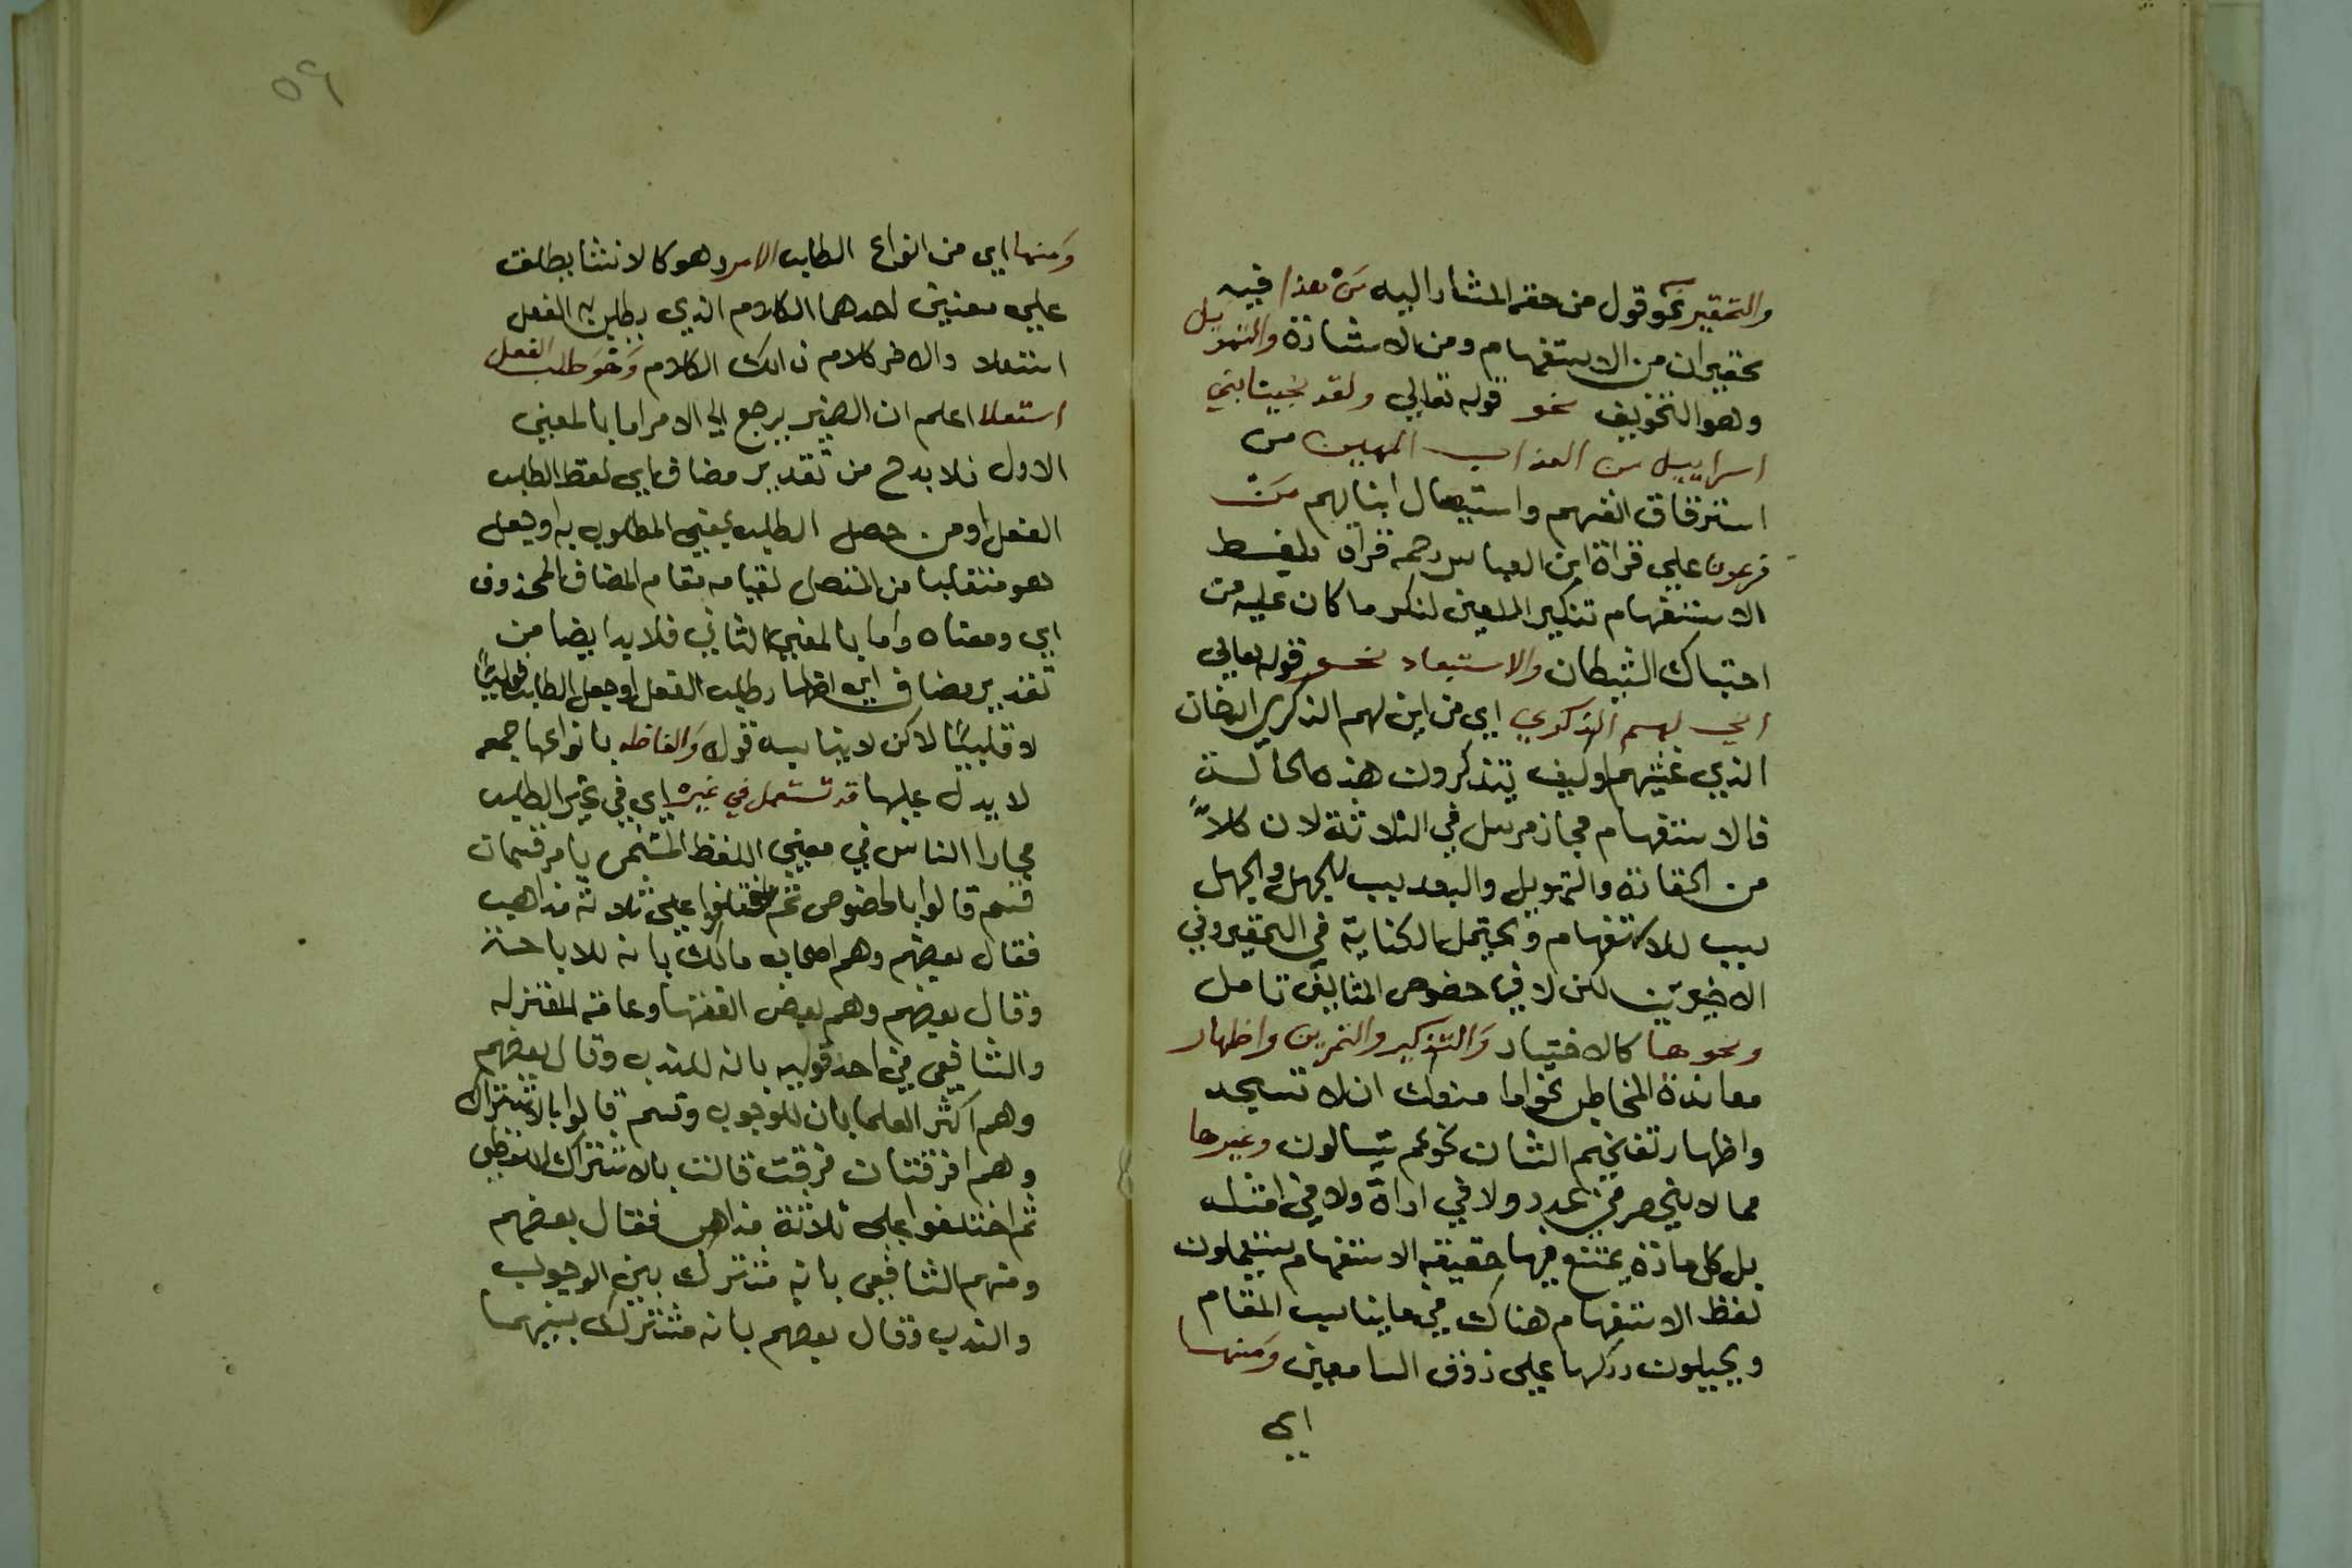 والتحقير نحو قول من حقر المشار اليه مَنْ هذا فبيه
تحقيران من الاستفهام ومن الاشارة والتهويل
وهو التخويف نحو قوله تعالي ولقد نجينا بني
اسراييل من العذاب المهين من
استرقاق انفسهم واستيصال ابنايهم مَنْ
فرعون علي قراة ابن العباس رحمه قراه بلفظ
الاستفهام تنكير اللعين لنكر ما كان عليه من
احتباك الشيطان والاستبعاد نحو قوله تعالي
اني لهم الذكري اي من اين لهم الذكري الدخان
الذي غشيهم اوكيف يتذكرون هذه الحالة
فالاستفهام مجاز مرسل في الثلاثة لان كلاً
من الحقارة والتهويل والبعد سبب للجهل والجهل
سبب للاستفهام ويحتمل الكناية في التحقير وفي
الاخيرين لكن لا في خصوص المثالين تامل
ونحوها كالاختبار والتذكير والتمرين واظهار
معاندة المخاطب نحو اما منعك ان لا تسجد
واظهار تفخيم الشان نحو عم يتسالون وغيرها
مما لا ينحصر في عدد ولا في اداة ولا في امثلة
بل كل مادة يمتنع فيها حقيقة الاستفهام يستعملون
لفظ الاستفهام هناك في ما يناسب المقام
ويحيلون دركها علي ذوق السامعين ومنها
اي
٥٩
ومنها اي من انواع الطلب الامر وهو كالانشا يطلق
علي معنيين احدهما الكلام الذي يطلب به الفعل
استعلا والاخر كلام ذالك الكلام وَهُوَ طلب الفعل
استعلا اعلم ان الضمير يرجع الي الامر اما بالمعني
الاول فلا بد ح من تقدير مضاف اي لفظ الطلب
الفعل او من حصل الطلب بمعني المطلوب به او جعل
هو منتقلبا من المتصل لقيامه مقام المضاف المحذوف
اي ومعناه واما بالمعني الثاني فلا بد ايضا من
تقدير مضاف اي اظهار طلب الفعل او جعل الطلب
لا قلبيًا لاكن لا يناسبه قوله وَالفاظه بانواعها جمعه
لا يدل عليها قد تستعمل في غيره اي في غير الطلب
مجازا الناس في معني اللفظ المسمي بامر قسمان
قسم قالوا بالخصوص ثم اختلفوا علي ثلاثة مذاهب
فقال بعضهم وهم اصحاب مالك بانه للاباحة
وقال بعضهم وهم بعض الفقها وعامة المعتزله
والشافعي في احد قوليه بانه للندب وقال بعضهم
وهم اكثر العلما بان للوجوب وقسم قالوا بالاشتراك
وهم افرقتان فرقت قالت بالاشتراك اللفظي
ثم اختلفوا علي ثلاثة مذاهب فقال بعضهم
ومنهم الشافعي بانه مشترك بين الوجوب
والندب وقال بعضهم بانه مشترك بينهما